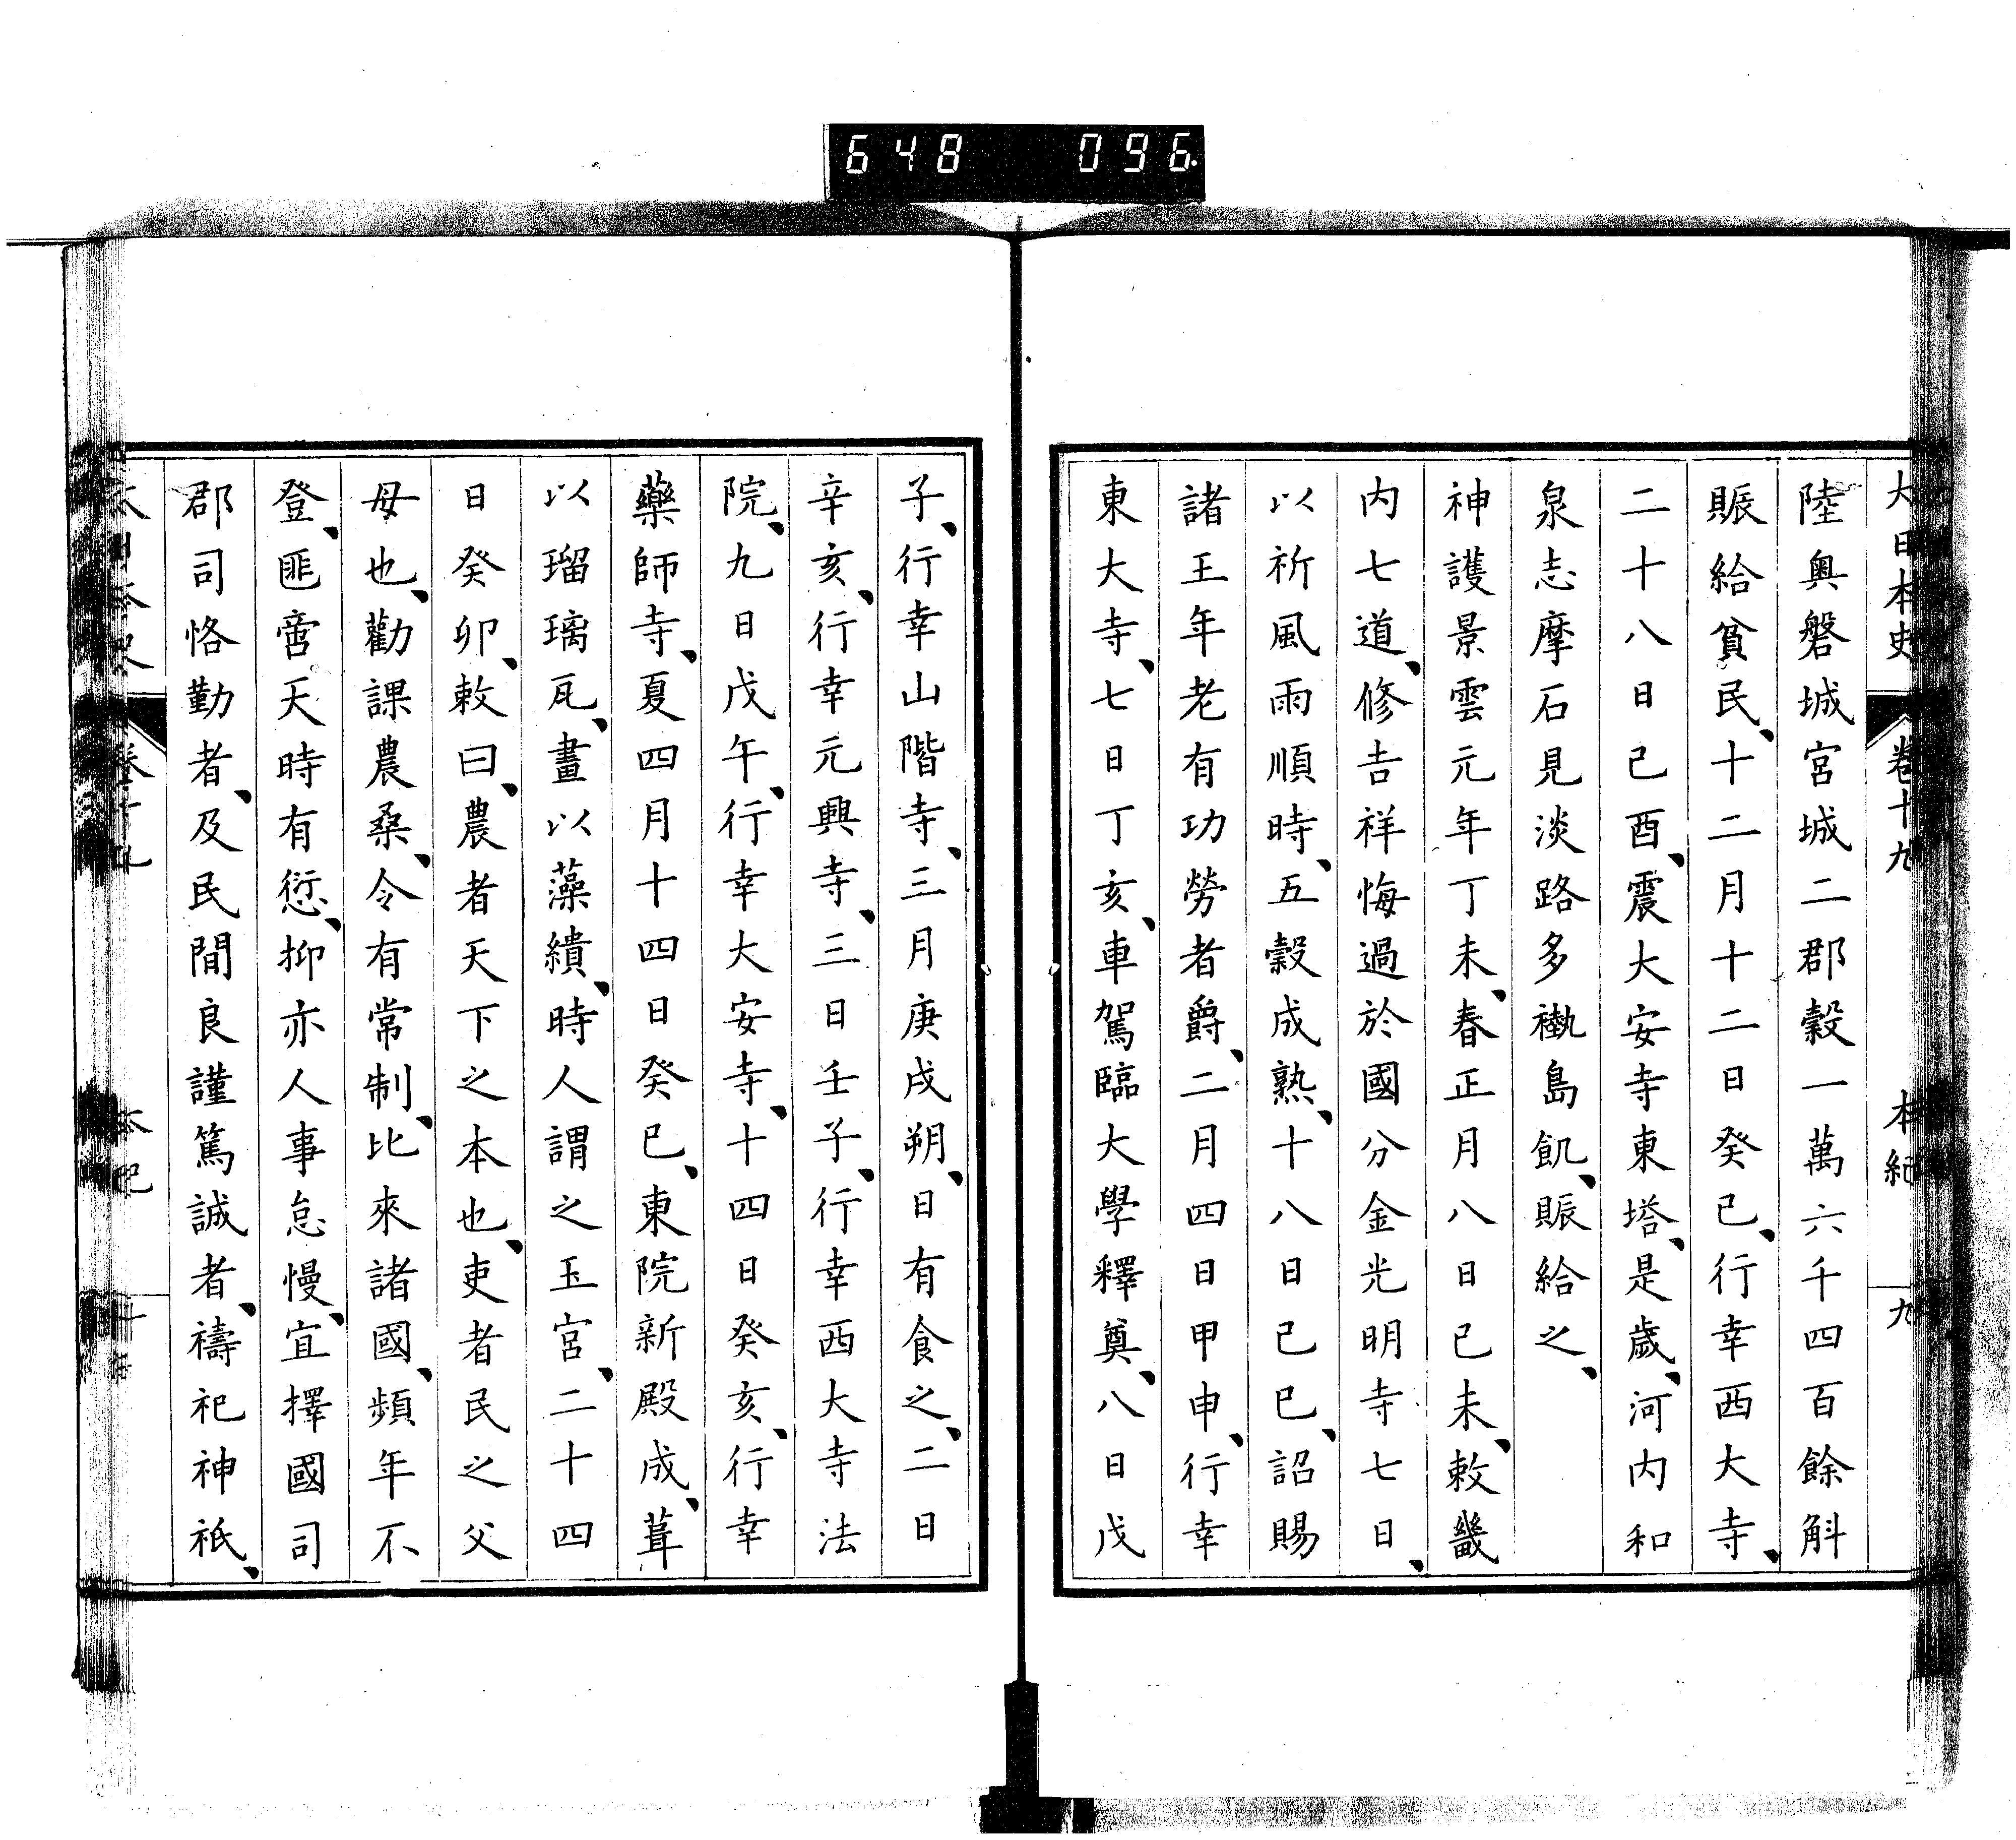 648 096
大日本史 卷十九 本紀 九
陸奥磐城宮城二郡穀一萬六千四百餘斛
賑給貧民、十二月十二日癸巳、行幸西大寺、
二十八日己酉、震大安寺東塔、是歲、河内和
泉志摩石見淡路多褹島飢、賑給之、
神護景雲元年丁未、春正月八日己未、敕畿
内七道、修吉祥悔過於國分金光明寺七日、
以祈風雨順時、五穀成熟、十八日己巳、詔賜
諸王年老有功勞者爵、二月四日甲申、行幸
東大寺、七日丁亥、車駕臨大學釋奠、八日戊
子、行幸山階寺、三月庚戌朔、日有食之、二日
辛亥、行幸元興寺、三日壬子、行幸西大寺法
院、九日戊午、行幸大安寺、十四日癸亥、行幸
藥師寺、夏四月十四日癸巳、東院新殿成、葺
以瑠璃瓦、畫以藻繢、時人謂之玉宮、二十四
日癸卯、敕曰、農者天下之本也、吏者民之父
母也、勸課農桑、令有常制、比來諸國、頻年不
登、匪啻天時有愆、抑亦人事怠慢、宜擇國司
郡司恪勤者、及民間良謹篤誠者、禱祀神祇、